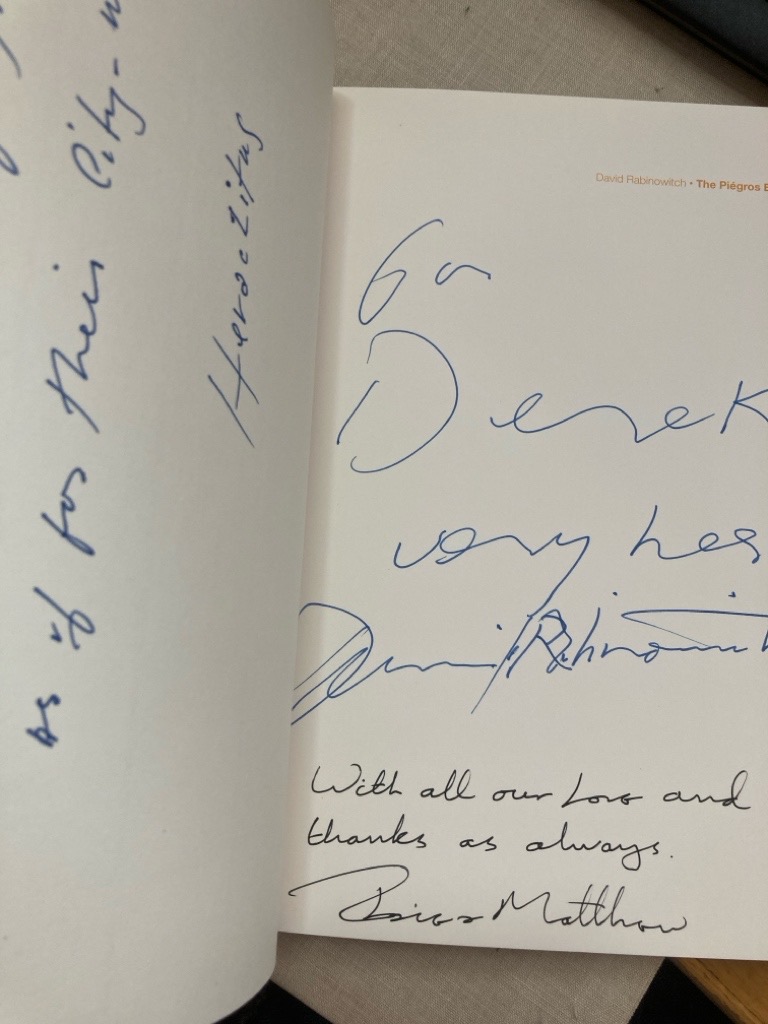 as if for their City-
Heraclitus
David Rabinowitch • The Piégros
For
Derek
very bes
David Rabinowit
With all our love and
thanks as always.
Matthew